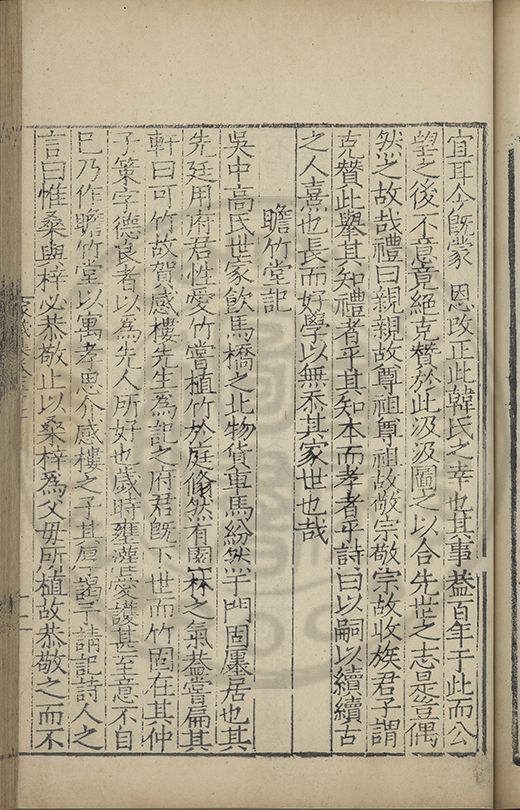 宜耳今既蒙　恩改正此韓氏之幸也其事蓋百年于此而公
望之後不意竟絕克贊於此汲汲圖之以合先世之志是豈偶
然之故哉禮曰親親故尊祖尊祖故敬宗敬宗故收族君子謂
克贊此舉其知禮者乎其知本而孝者乎詩曰以嗣以續續古
之人熹也長而好學以無忝其家世也哉
瞻竹堂記
吳中高氏世家飲馬橋之北物貨車馬紛然乎門固廛居也其
先廷用府君性愛竹嘗植竹於庭翛然有園林之氣蓋嘗扁其
軒曰可竹故賀感樓先生為記之府君既下世而竹固在其仲
子策字德良者以為先人所好也歲時壅灌愛護甚至意不自
已乃作瞻竹堂以寓孝思介感樓之子其厚謁予請記詩人之
言曰惟桑與梓必恭敬止以桑梓為父母所植故恭敬之而不